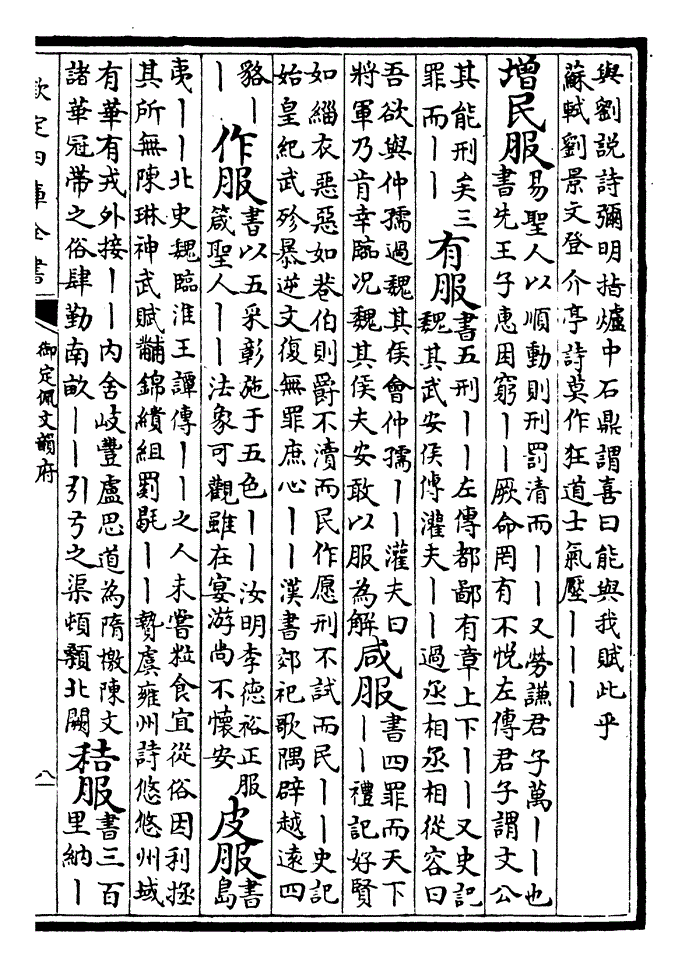 與劉說詩彌明指爐中石鼎謂喜曰能與我賦此乎
蘇軾劉景文登介亭詩莫作狂道士氣壓丨丨丨
增民服
易聖人以順動則刑罰清而丨丨又勞謙君子萬丨丨也
書先王子惠困窮丨丨厥命罔有不悅左傳君子謂文公
其能刑矣三
罪而丨丨
有服
書五刑丨丨左傳都鄙有章上下丨丨又史記
魏其武安侯傳灌夫丨丨過丞相丞相從容曰
吾欲與仲孺過魏其侯會仲孺丨丨灌夫曰
將軍乃肯幸臨况魏其侯夫安敢以服為解
咸服
書四罪而天下
丨丨禮記好賢
如緇衣惡惡如巷伯則爵不瀆而民作愿刑不試而民丨丨史記
始皇紀武殄暴逆文復無罪庶心丨丨漢書郊祀歌隅辟越遠四
貉丨
丨
作服
書以五采彰施于五色丨丨汝明李德裕正服
箴聖人丨丨法象可觀雖在宴游尚不懷安
皮服
書
島
夷丨丨北史魏臨淮王譚傳丨丨之人未嘗粒食宜從俗因利拯
其所無陳琳神武賦黼錦繢組罽毼丨丨摯虞雍州詩悠悠州域
有華有戎外接丨丨內舍岐豐盧思道為隋檄陳文
諸華冠帶之俗肆勤南畝丨丨引弓之渠頓顙北闕
秸服
書三百
里納丨
欽定四庫全書
御定佩文韻府
八